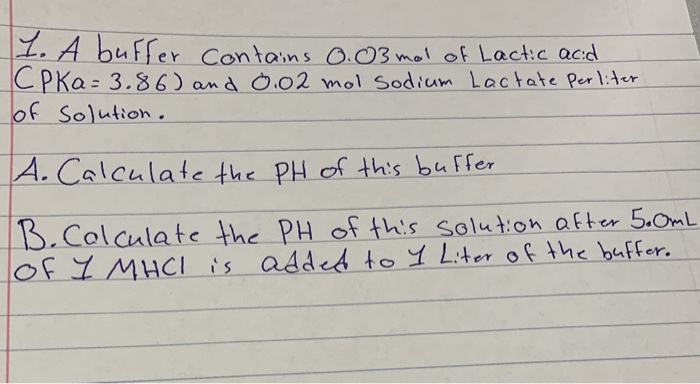 1. A buffer contains 0.03 mol of Lactic acid
(PKa = 3.86) and 0.02 mol Sodium Lactate Per liter
of Solution.
A. Calculate the PH of this buffer
B. Calculate the PH of this solution after 5.0mL
of 1 MHCl is added to 1 Liter of the buffer.